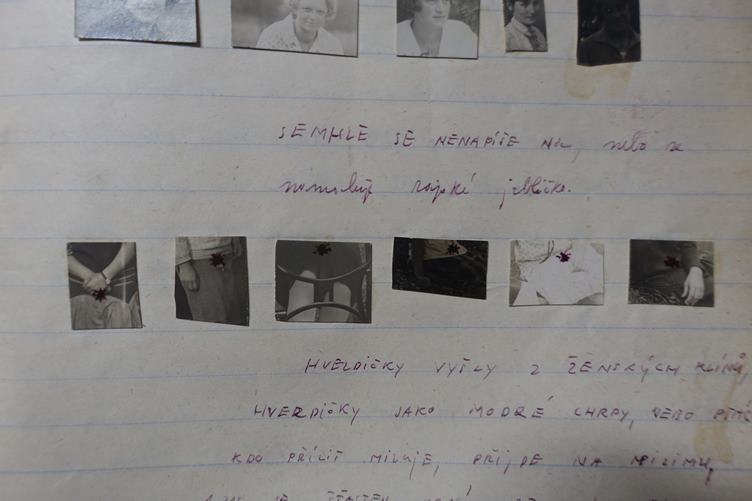 SEMHLE SE NENAPÍŠE NIC, nebo se
namaluje rajské jablíčko.
HVĚZDIČKY VYŠLY Z ŽENSKÝCH KLÍNŮ,
HVEZDIČKY JAKO MODRÉ CHRPY, NEBO
KDO PŘÍLIŠ MILUJE, PŘIJDE NA MIZINU,
JE ŠŤASTEN